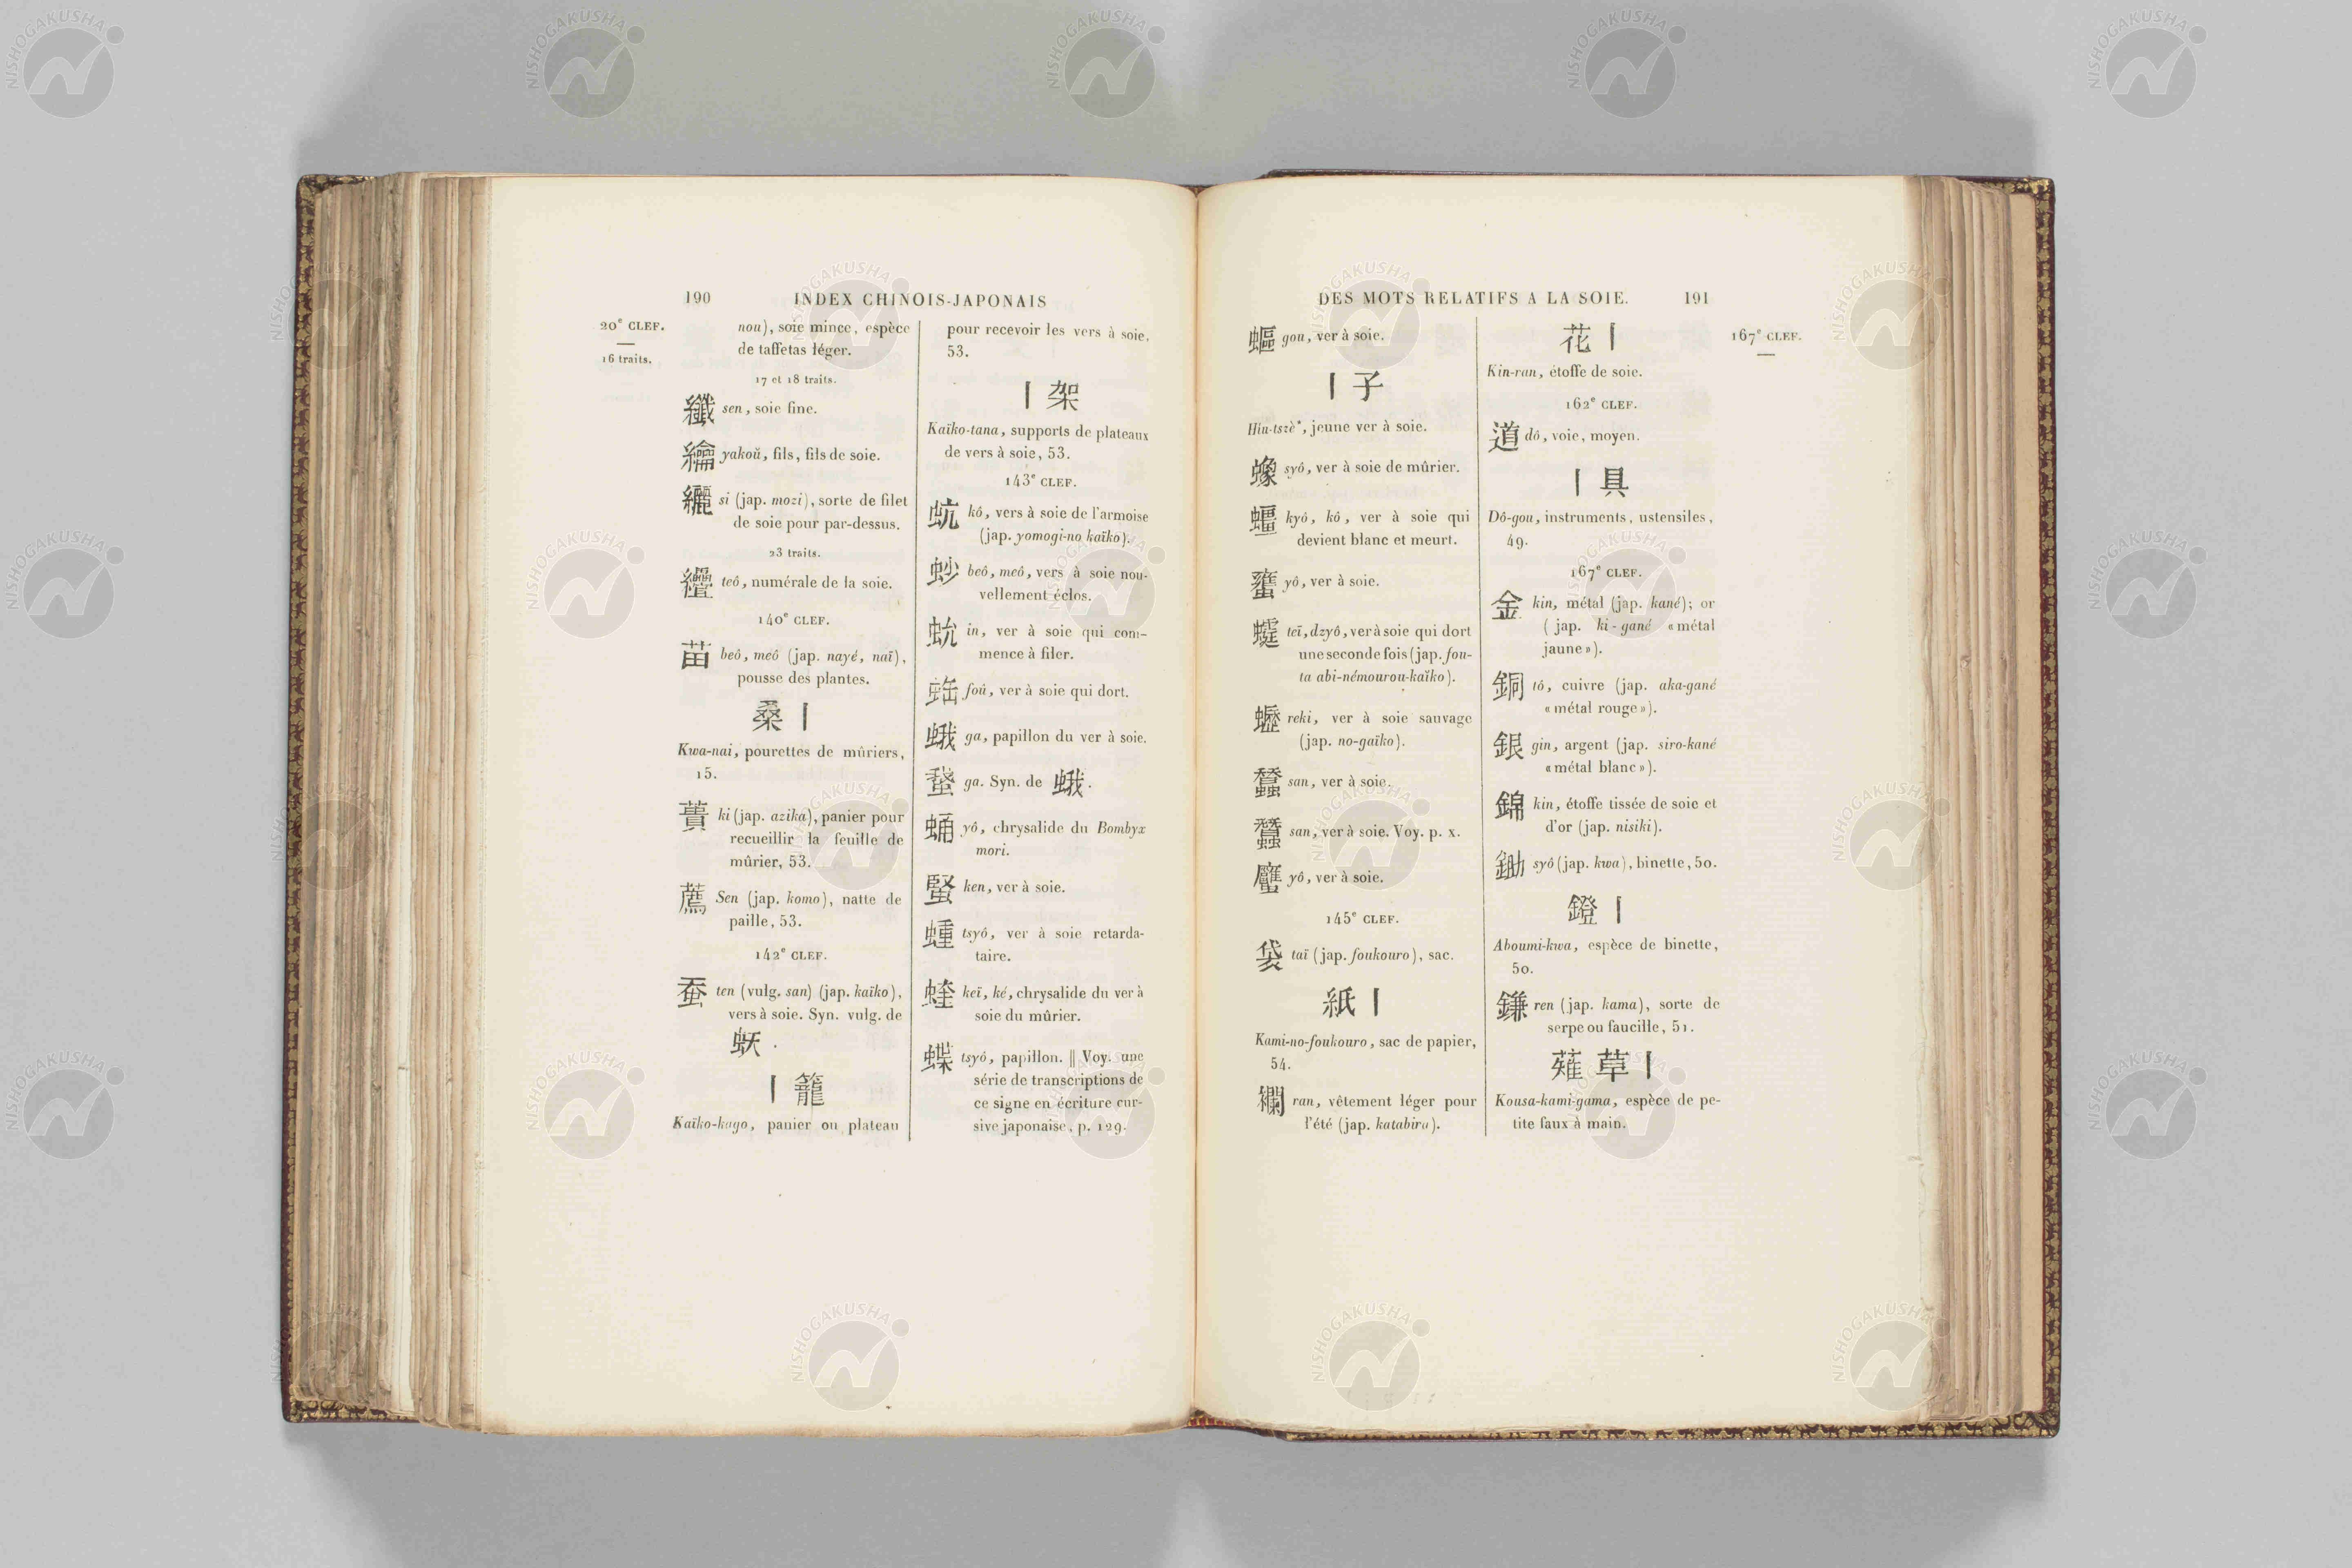 190 INDEX CHINOIS-JAPONAIS
20e CLEF.
16 traits.
nou), soie mince, espèce
de taffetas léger.
17 et 18 traits.
纖 sen, soie fine.
yakoŭ, fils, fils de soie.
纚 si (jap. mozi), sorte de filet
de soie pour par-dessus.
23 traits.
teô, numérale de la soie.
140e CLEF.
苗 beô, meô (jap. nayé, naï),
pousse des plantes.
桑 |
Kwa-nai, pourettes de mûriers,
15.
蕢 ki (jap. azika), panier pour
recueillir la feuille de
mûrier, 53.
薦 Sen (jap. komo), natte de
paille, 53.
142e CLEF.
蚕 ten (vulg. san) (jap. kaïko),
vers à soie. Syn. vulg. de
蚕 .
| 籠
Kaïko-kago, panier ou plateau
pour recevoir les vers à soie,
53.
| 架
Kaïko-tana, supports de plateaux
de vers à soie, 53.
143e CLEF.
蚢 kô, vers à soie de l'armoise
(jap. yomogi-no kaïko).
䖢 beô, meô, vers à soie nou-
vellement éclos.
in, ver à soie qui com-
mence à filer.
foŭ, ver à soie qui dort.
蛾 ga, papillon du ver à soie.
ga. Syn. de 蛾.
蛹 yô, chrysalide du Bombyx
mori.
ken, ver à soie.
tsyô, ver à soie retarda-
taire.
keï, ké, chrysalide du ver à
soie du mûrier.
蝶 tsyó, papillon. || Voy. une
série de transcriptions de
ce signe en écriture cur-
sive japonaise, p. 129.
DES MOTS RELATIFS A LA SOIE. 191
167e CLEF.
gou, ver à soie.
| 子
Hiu-tszè*, jeune ver à soie.
蟓 syô, ver à soie de mûrier.
kyó, kô, ver à soie qui
devient blanc et meurt.
yô, ver à soie.
teï, dzyô, ver à soie qui dort
une seconde fois (jap. fou-
ta abi-némourou-kaïko).
reki, ver à soie sauvage
(jap. no-gaïko).
蠶 san, ver à soie.
san, ver à soie. Voy. p. x.
yô, ver à soie.
145e CLEF.
袋 taï (jap. foukouro), sac.
紙 |
Kami-no-foukouro, sac de papier,
54.
襴 ran, vêtement léger pour
l'été (jap. katabira).
花 |
Kin-ran, étoffe de soie.
162e CLEF.
道 dô, voie, moyen.
| 具
Dô-gou, instruments, ustensiles,
49.
167e CLEF.
金 kin, métal (jap. kané); or
(jap. ki-gané «métal
jaune»).
銅 tô, cuivre (jap. aka-gané
«métal rouge»).
銀 gin, argent (jap. siro-kané
«métal blanc»).
錦 kin, étoffe tissée de soie et
d'or (jap. nisiki).
鋤 syô (jap. kwa), binette, 50.
鐙 |
Aboumi-kwa, espèce de binette,
50.
鎌 ren (jap. kama), sorte de
serpe ou faucille, 51.
薙 草 |
Kousa-kami-gama, espèce de pe-
tite faux à main.